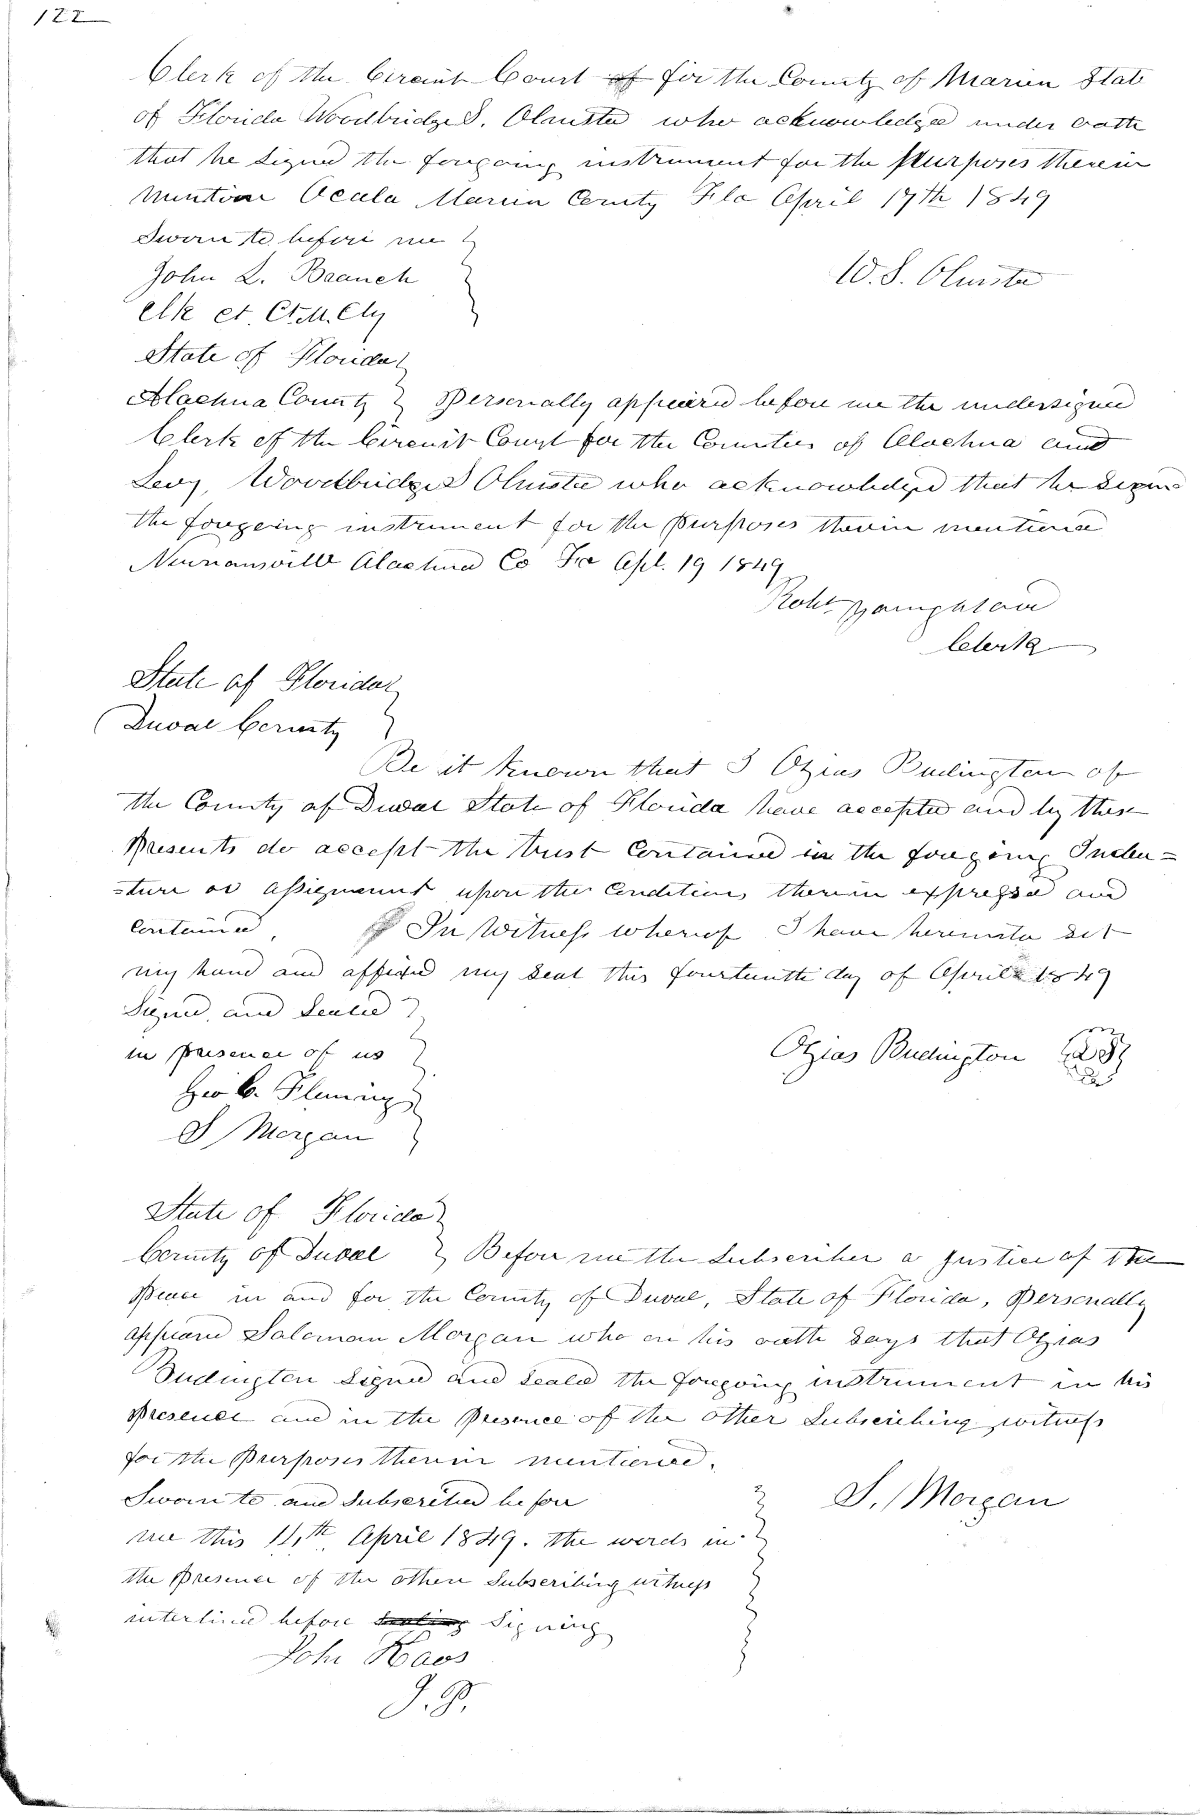 122
Clerk of the Circuit Court of for the County of Marion State
of Florida Woodbridge S. Olmsted who acknowledged under oath
that he signed the foregoing instrument for the purposes therein
mention Ocala Marion County Fla April 17th 1849
Sworn to before me
John L. Branch W. S. Olmsted
Clk ct. Ct. M. Cty
State of Florida
Alachua County Personally appeared before me the undersigned
Clerk of the Circuit Court for the Counties of Alachua and
Levy, Woodbridge S Olmsted who acknowledged that he signed
the foregoing instrument for the purposes therein mentioned
Newnansville Alachua Co Fa Apl. 19 1849
Robt
Clerk
State of Florida
Duval County
Be it known that I Ozias Budington of
the County of Duval State of Florida have accepted and by these
Presents do accept the trust contained in the foregoing Inden=
=ture or assignment upon the conditions therein expressed and
contained, In Witness whereof I have hereunto set
my hand and affixed my seal this fourteenth day of April 1849
Signed, and Sealed
in presence of us Ozias Budington LS
Geo C. Fleming
S Morgan
State of Florida
County of Duval Before me the Subscriber a Justice of the
Peace in and for the County of Duval, State of Florida, Personally
appeared Soloman Morgan who on his oath says that Ozias
Budington signed and sealed the foregoing instrument in his
Presence and in the presence of the other Subscribing witness
for the Purposes therein mentioned.
Sworn to and Subscribed before S. Morgan
me this 14th April 1849. the words in
the Presence of the other Subscribing witness
interlined before sealing Signing
John
J. P.